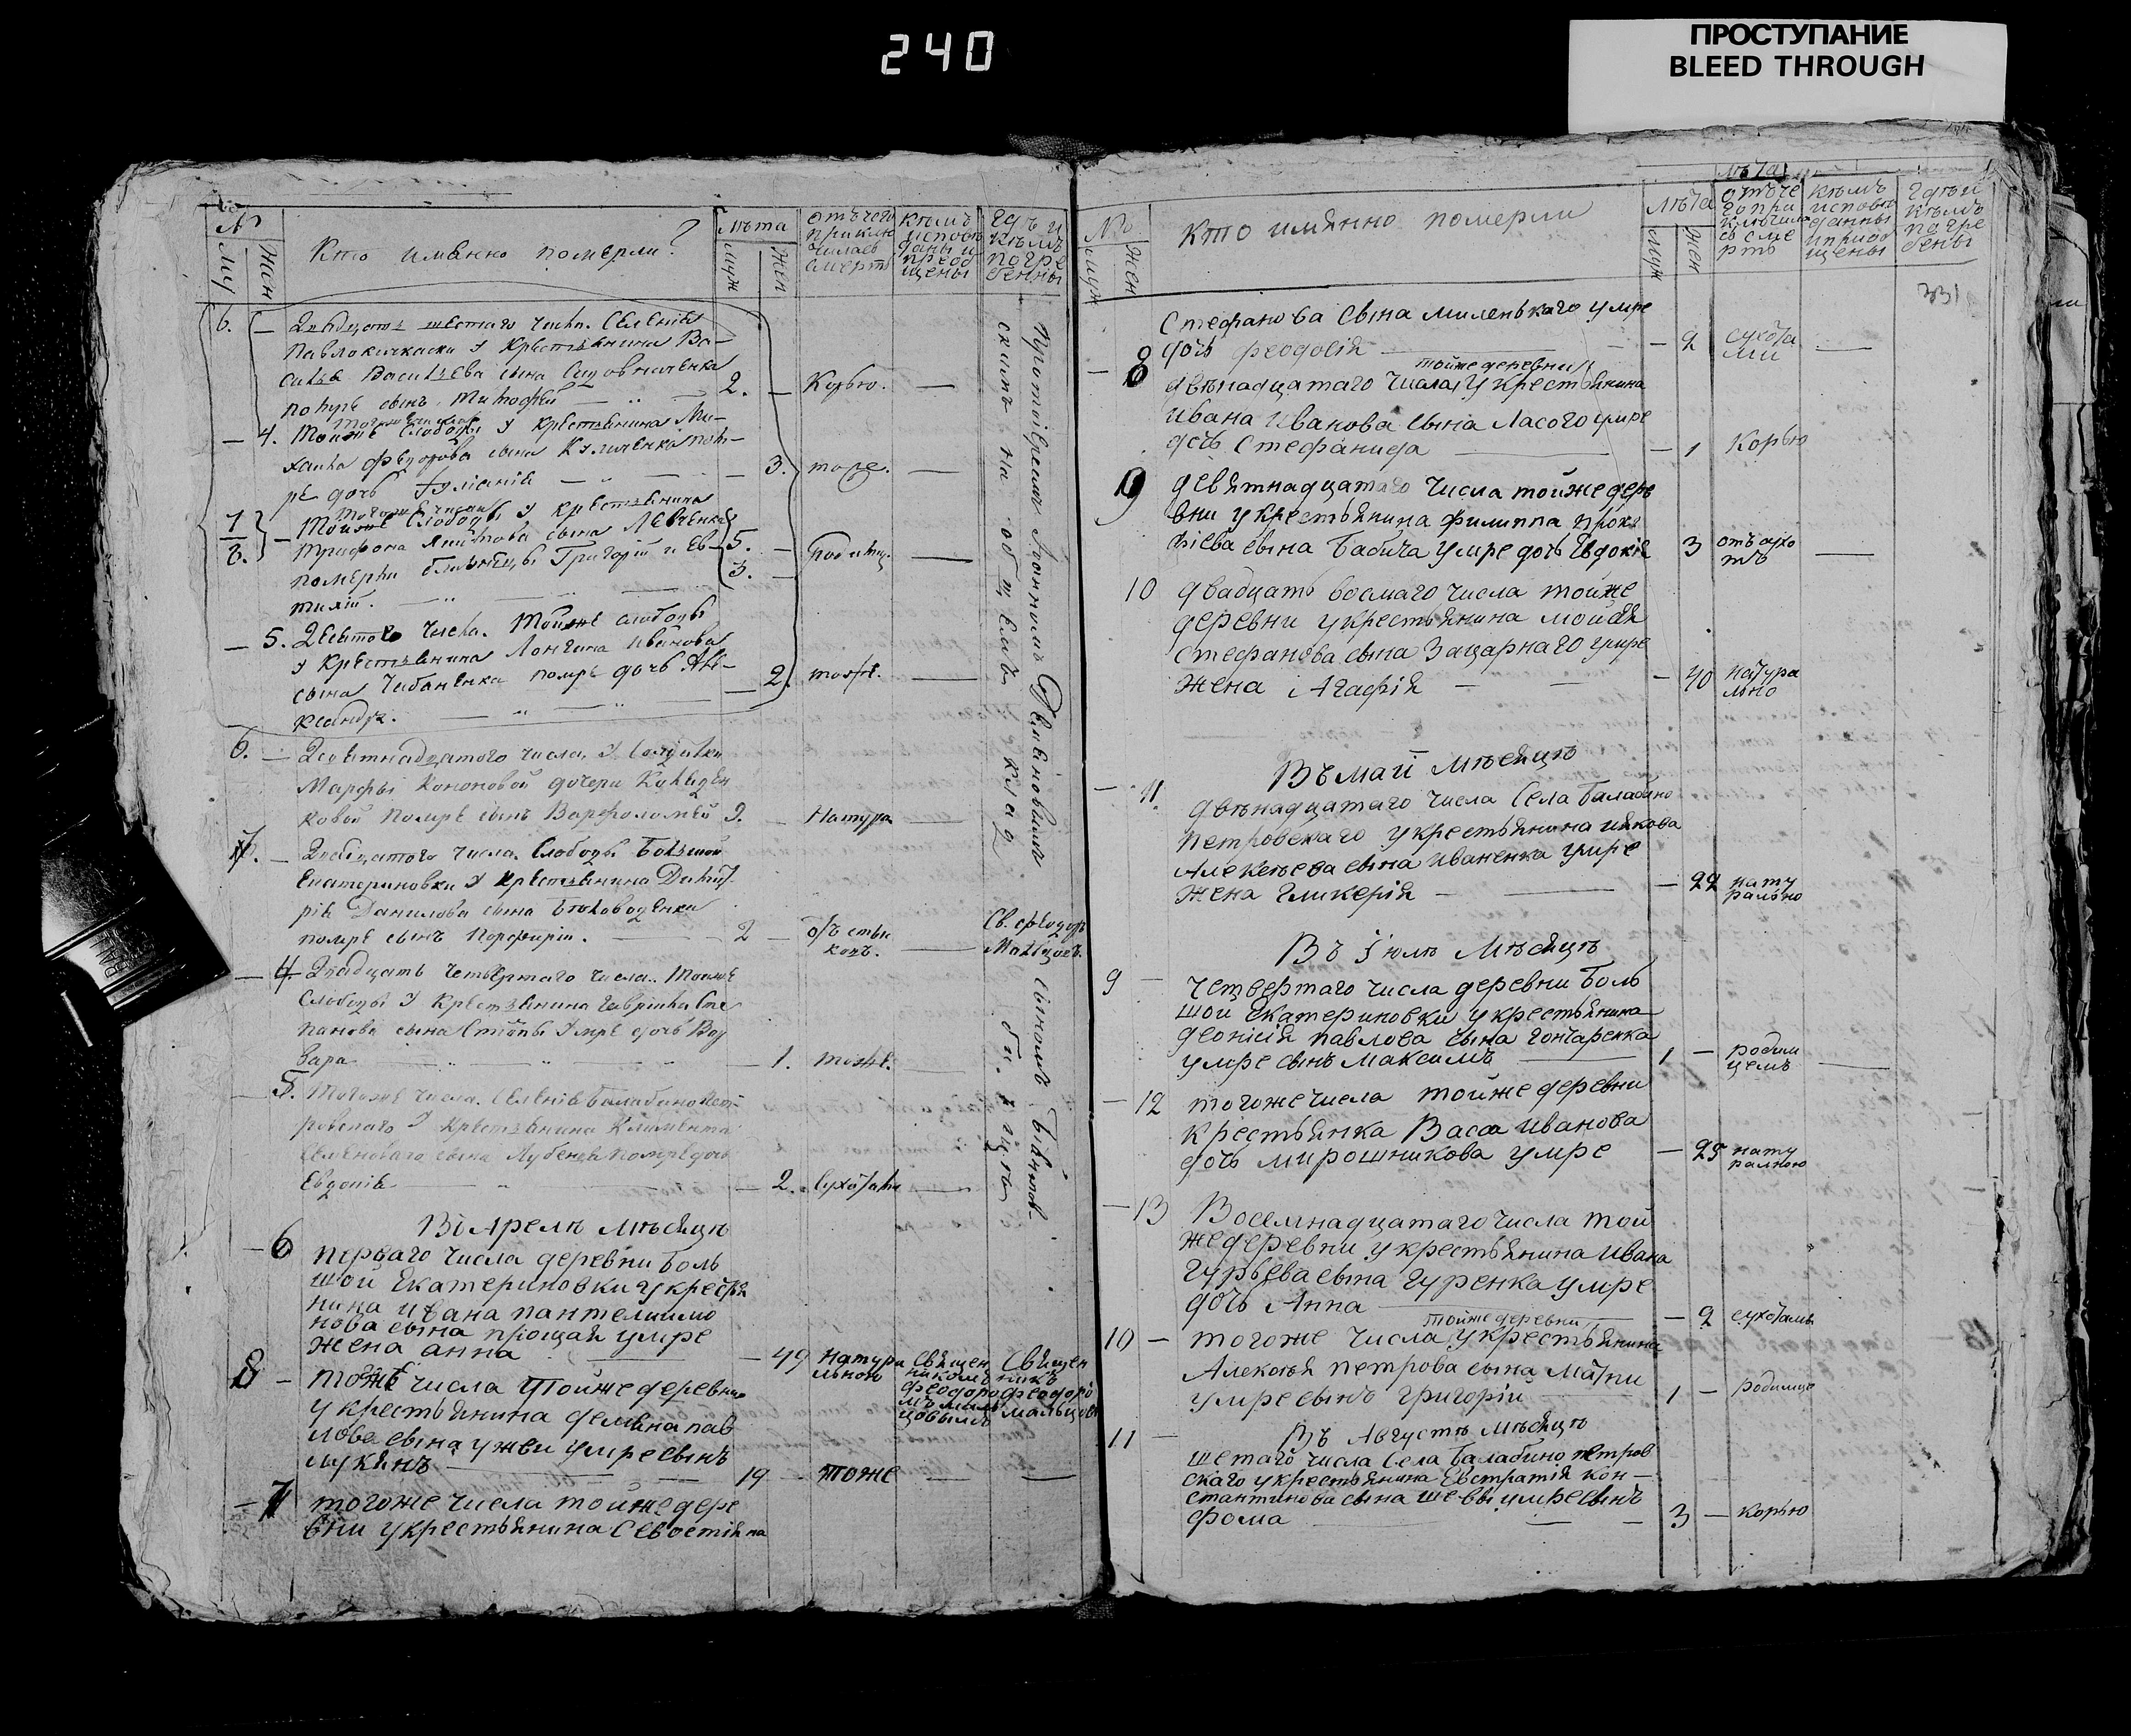 240
ПРОСТУПАНИЕ
BLEED THROUGH
№
Му
Жен
Кто имянно померли?
Лѣта
муж
жен
отъ чего
приклю
чилась
смерть
Кѣмъ
исповѣ
даны и
приоб
щены
Гдѣ и
кѣмъ
погре
бенны
6. — Двадцать шестаго числа. Селенія
Павлокичкаски у крестьянина Ва-
силья Васильева сына
помре сынъ Тимофей 2. — Корью. —
Тогожъ числа
— 4. Тойже Слободы у крестьянина Ми-
хайла Федорова сына пом-
ре дочь Іуліанія — 3. тоже. —
Тогоже числа
7 8. — Тойже Слободы у крестьянина
Трифона сына Левченка
померли близнецы Григорій и Ев-
тихій. 5. 3. —
— 5. Десятого числа. Тойже слободы
у крестьянина Логгина Иванова
сына Чабаненка помре дочь Але-
ксандра. — 2. тоже. —
6. — Девятнадцатого числа, у солдатки
Марфы Кононовой дочери
ковой помре сынъ Варфоломей 3. — Натура —
7. — Двадцатого числа. Слободы Большой
Екатериновки у крестьянина Дмит-
рія Данилова сына Беловоденка
помре сынъ Порфирій. 2 —
Св. Феодоръ
Мальцовъ.
— 4. Двадцать четвертого числа. Тойже
Слободы у крестьянина Гаврила Сте
панова сына умре дочь Вар
вара — 1. тоже. —
— 5. Тогоже числа. Селенія Балабинопет-
ровскаго у крестьянина Климента
Семеноваго сына помре дочь
Евдокія — 2. Сухотами —
Въ Апрелѣ мѣсяцѣ
— 6 перваго числа деревни Боль
шой Екатериновки у крестья
нина Ивана Пантелиимо
нова сына Прощая умре
жена Анна — 49 натура
льною
Священ
никомъ
Феодоро
мъ Маль
цовымъ
Священ
никъ
Феодоръ
Мальцовъ
8 — тогожъ числа тойже деревни
у крестьянина Демяна Пав
лова сына Ужви умре сынъ
Лукянъ 19 — тоже — —
— 7 тогоже числа тойже дере
вни у крестьянина Севостіяна
№
Муж
Жен
Кто имянно померли
Лѣта
Муж
Жен
Лѣта
отъ че
го при
ключила
сь сме
рть
Кѣмъ
исповѣ
данны
и приоб
щены
Гдѣ и
кѣмъ
погре
бены
331
Стефанова сына Миленькаго умре
дочь Феодосія — 2 сухота
ми —
тойже деревни
— 8 двѣнадцатаго числа у крестьянина
Ивана Иванова сына Ласого умре
дочь Стефанида — 1 Корью
9 девятнадцатаго числа тойже дере
вни у крестьянина Филиппа Проко
фіева сына Бабича умре дочь Евдокія 3 отъ сухо
тъ —
10 двадцать восмаго числа тойже
деревни у крестьянина Мойсія
Стефанова сына Зацарнаго умре
жена Агафія — 40 натура
льно
Въ маіи мѣсяцѣ
— 11. двѣнадцатаго числа Села Балабино
Петровскаго у крестьянина Иякова
Алексѣева сына Иваненка умре
жена Гликерія — 22 нату
рально
Въ іюлѣ Мѣсяцѣ
9 — четвертаго числа деревни Боль
шой Екатериновки у крестьянина
Деонісія Павлова сына Гончаренка
умре сынъ Максимъ 1 — родим
цемъ —
— 12 тогоже числа тойже деревни
крестьянка Васса Иванова
дочь Мирошникова умре — 25 нату
ралною
— 13 Восемнадцатаго числа той
же деревни у крестьянина Ивана
Гурьева сына Гуренка умре
дочь Анна — 2 сухотамъ
тойже деревни
10 — тогоже числа у крестьянина
Алексѣя Петрова сына
умре сынъ Григорій 1 — родимце
11 — Въ Августѣ Мѣсяцѣ
шестаго числа Села Балабино Петров
скаго у крестьянина Евстратія Кон-
стантинова сына Шевы умре сынъ
Фома 3 — корью
Протоіреемъ Іоанномъ сыномъ
на общемъ кладбищѣ